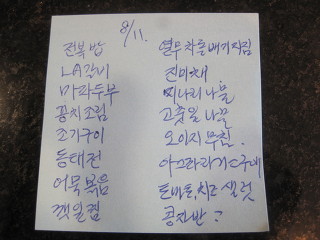 8/11.
전복밥
LA갈비
마파두부
꽁치조림
조기구이
동태전
어묵볶음
깻잎찜
열무차돌배기찌짐
진미채
미나리나물
고춧잎나물
오이지무침.
아스파라거스구이
토마토,치즈샐럿
콩자반?